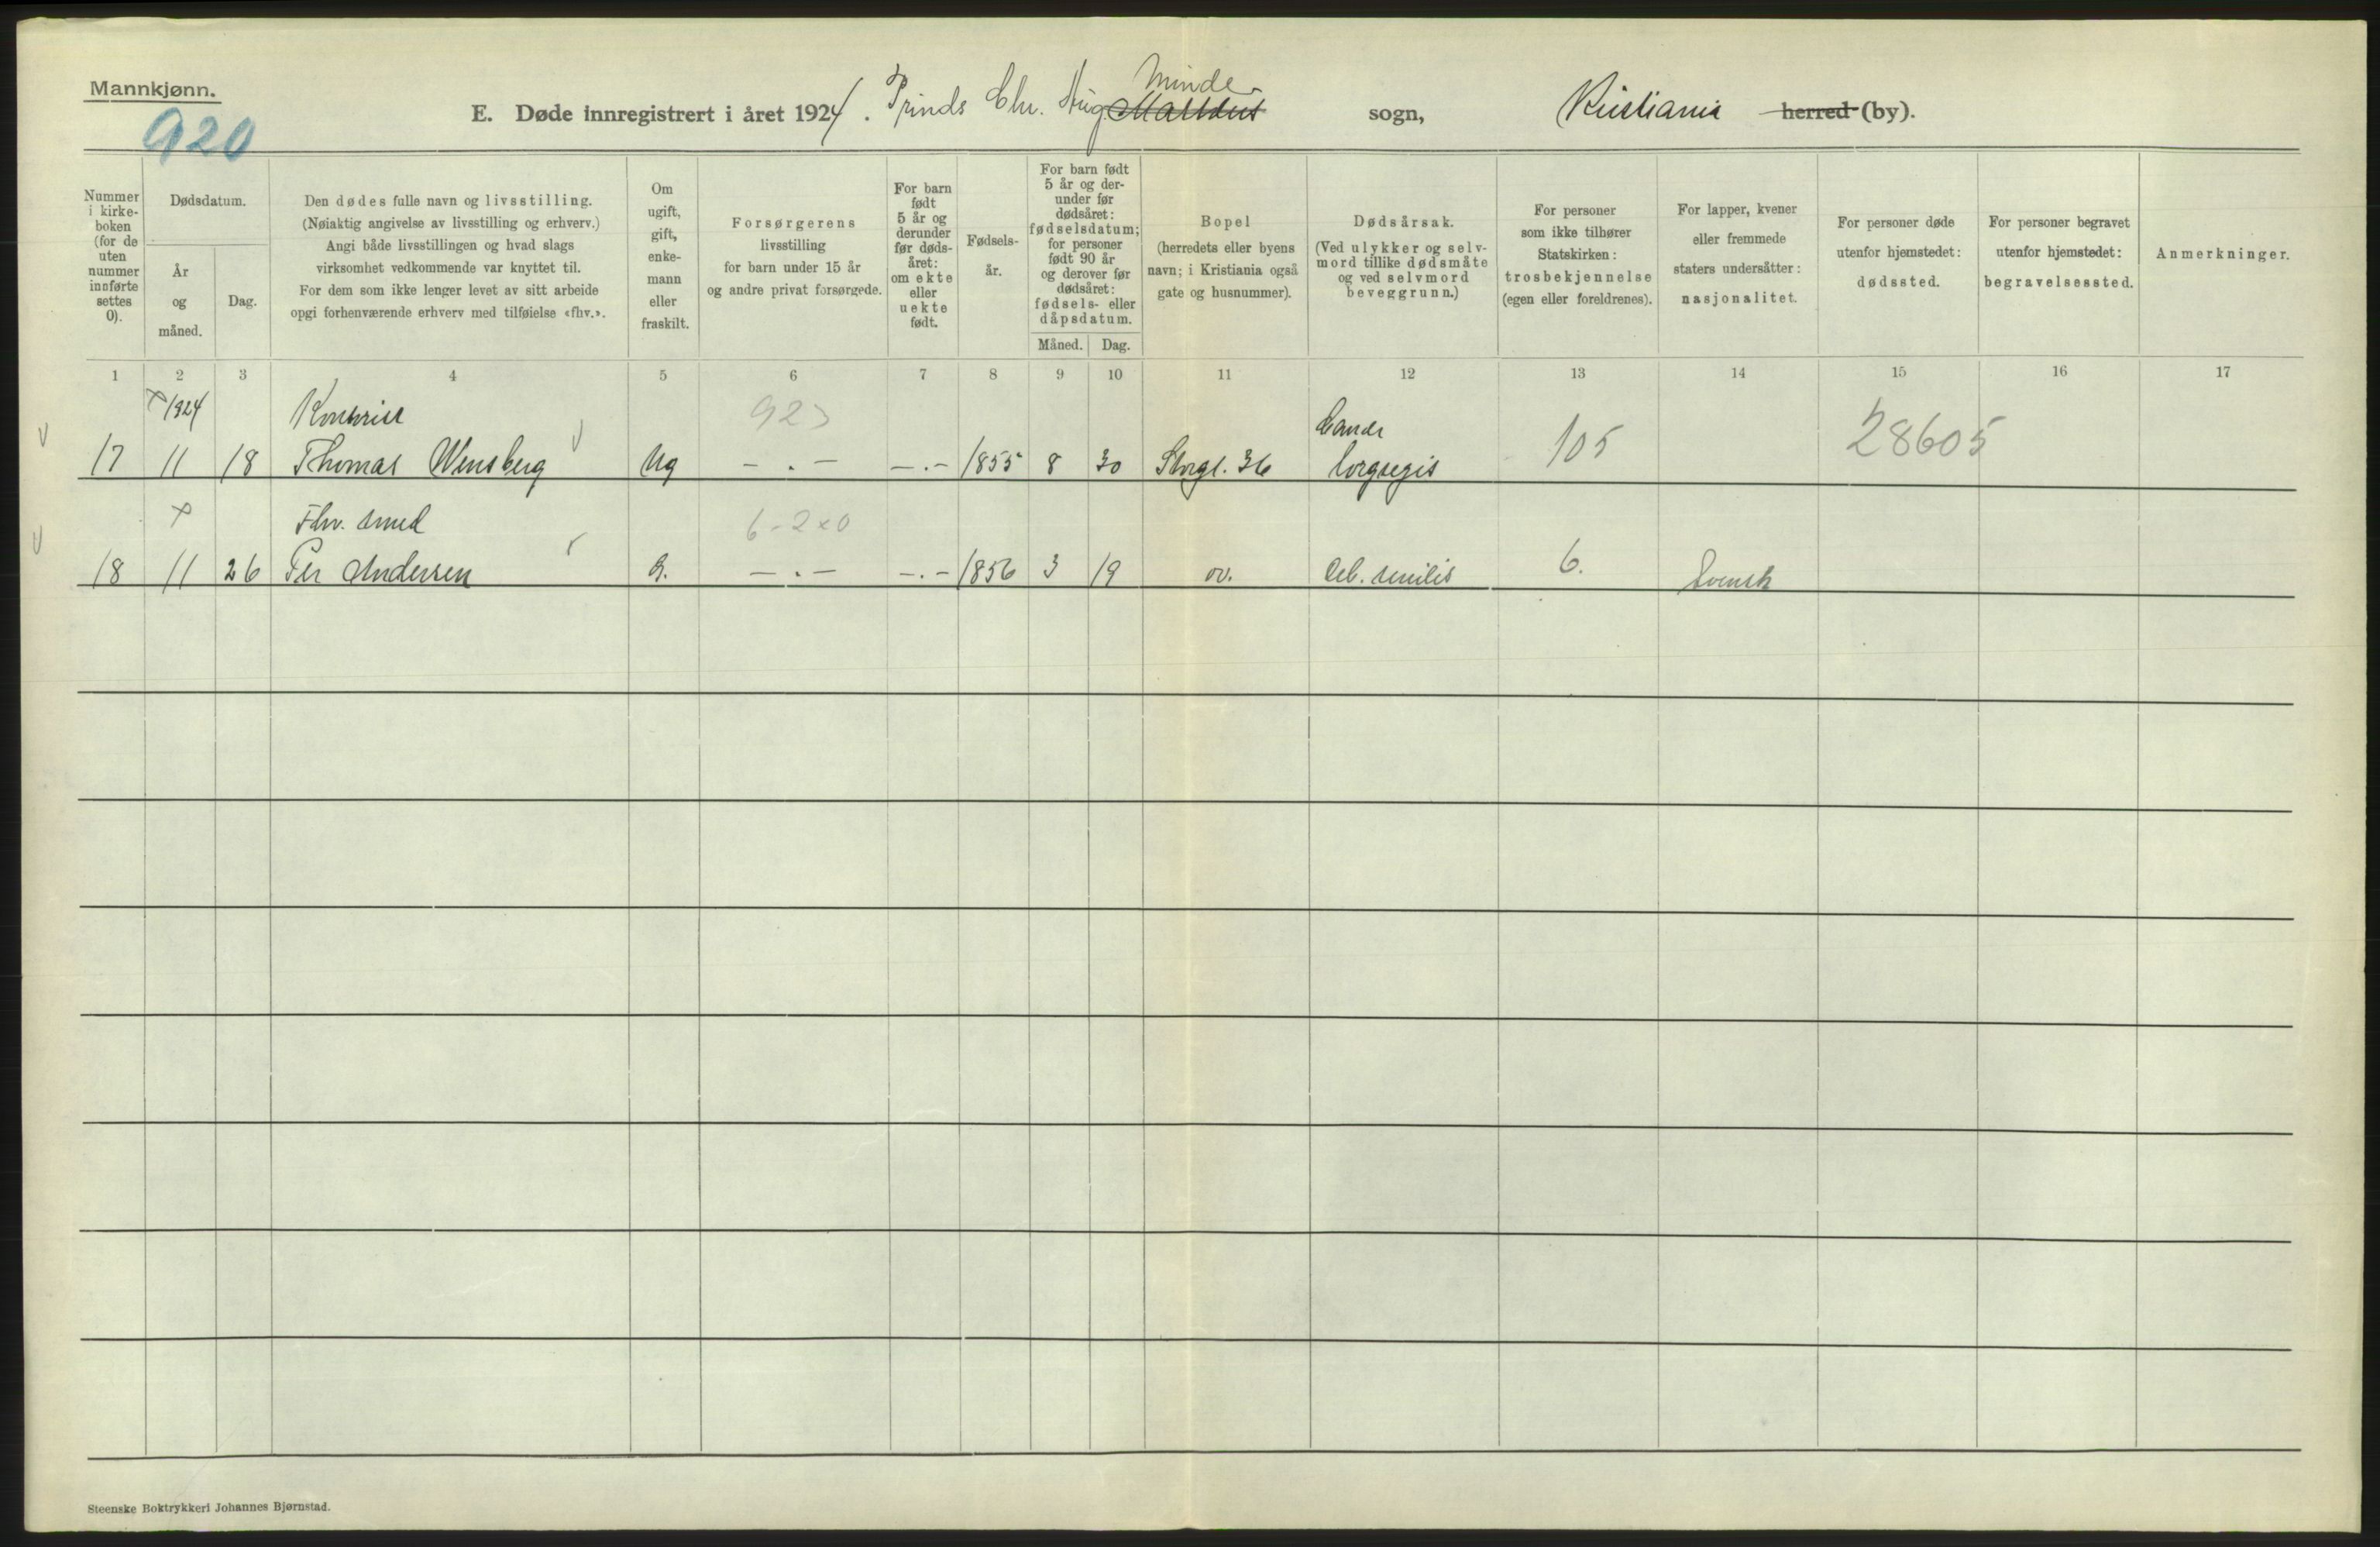 Mannkjønn.
920
E. Døde innregistrert i året 1924. Prinds Chr. Aug. Minde sogn, Kristiania herred (by).
Nummer i kirkeboken (for de uten nummer innførte settes 0).
Dødsdatum.
År og måned.
Dag.
Den dødes fulle navn og livsstilling.
(Nøiaktig angivelse av livsstilling og erhverv.)
Angi både livsstillingen og hvad slags
virksomhet vedkommende var knyttet til.
For dem som ikke lenger levet av sitt arbeide
opgi forhenværende erhverv med tilføielse «fhv.».
Om ugift, gift, enkemann eller fraskilt.
Forsørgerens
livsstilling
for barn under 15 år
og andre privat forsørgede.
For barn født 5 år og derunder før dødsåret: om ekte eller uekte født.
Fødselsår.
For barn født 5 år og derunder før dødsåret: fødselsdatum; for personer født 90 år og derover før dødsåret: fødsels- eller dåpsdatum.
Måned.
Dag.
Bopel
(herredets eller byens
navn; i Kristiania også
gate og husnummer).
Dødsårsak.
(Ved ulykker og selv-
mord tillike dødsmåte
og ved selvmord
beveggrunn.)
For personer
som ikke tilhører
Statskirken:
trosbekjennelse
(egen eller foreldrenes).
For lapper, kvener
eller fremmede
staters undersåtter:
nasjonalitet.
For personer døde
utenfor hjemstedet:
dødssted.
For personer begravet
utenfor hjemstedet:
begravelsessted.
Anmerkninger.
1 2 3 4 5 6 7 8 9 10 11 12 13 14 15 16 17
1924 923
17 11 18 Thomas Wensberg Ug - . - - . - 1855 8 30 Storgt. 36 105 28605
Fhv. smed 6-2x0
18 11 26 Per Andersen G. - . - - . - 1856 3 19 Deb. senilis 6. Svensk
Steenske Boktrykkeri Johannes Bjørnstad.